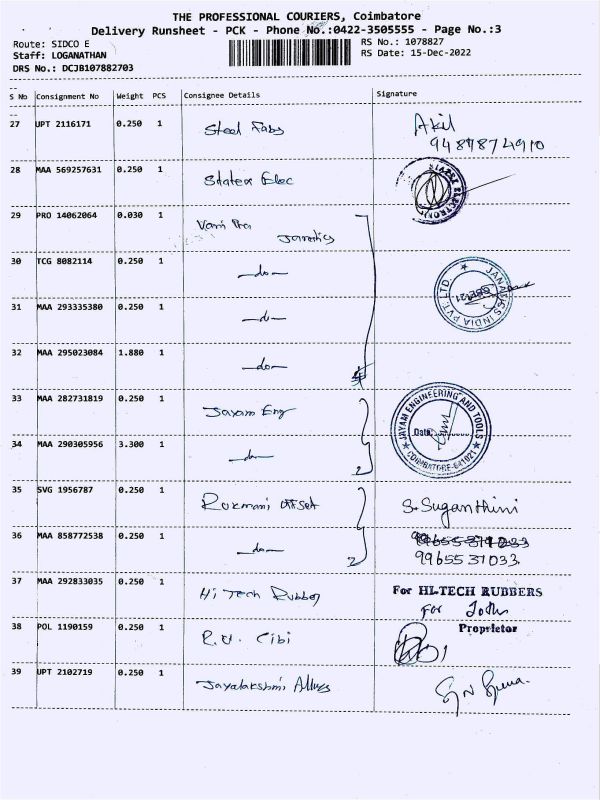 THE PROFESSIONAL COURIERS, Coimbatore
Delivery Runsheet - PCK - Phone No.:0422-3505555 - Page No.:3
Route: SIDCO E
RS No.: 1078827
Staff: LOGANATHAN
RS Date: 15-Dec-2022
DRS No.: DCJB107882703
S No Consignment No Weight PCS Consignee Details Signature
27 UPT 2116171 0.250 1 Steel Fabs Akil
9487874910
28 MAA 569257631 0.250 1 Statex Elec
29 PRO 14062064 0.030 1
30 TCG 8082114 0.250 1 -do-
JANATICS INDIA PVT. LTD.
31 MAA 293335380 0.250 1 -do-
32 MAA 295023084 1.880 1 -do-
4
33 MAA 282731819 0.250 1 Jayam Eng
JAYAM ENGINEERING AND TOOLS
Date:
COIMBATORE-641021
34 MAA 290305956 3.300 1 -do-
2
35 SVG 1956787 0.250 1 Rukmani Offset S. Suganthini
36 MAA 858772538 0.250 1 -do- 2
99655 31033
37 MAA 292833035 0.250 1 Hi Tech Rubber For HI-TECH RUBBERS
For
Proprietor
38 POL 1190159 0.250 1 R.U. Cibi
39 UPT 2102719 0.250 1 Jayalakshmi Alloys